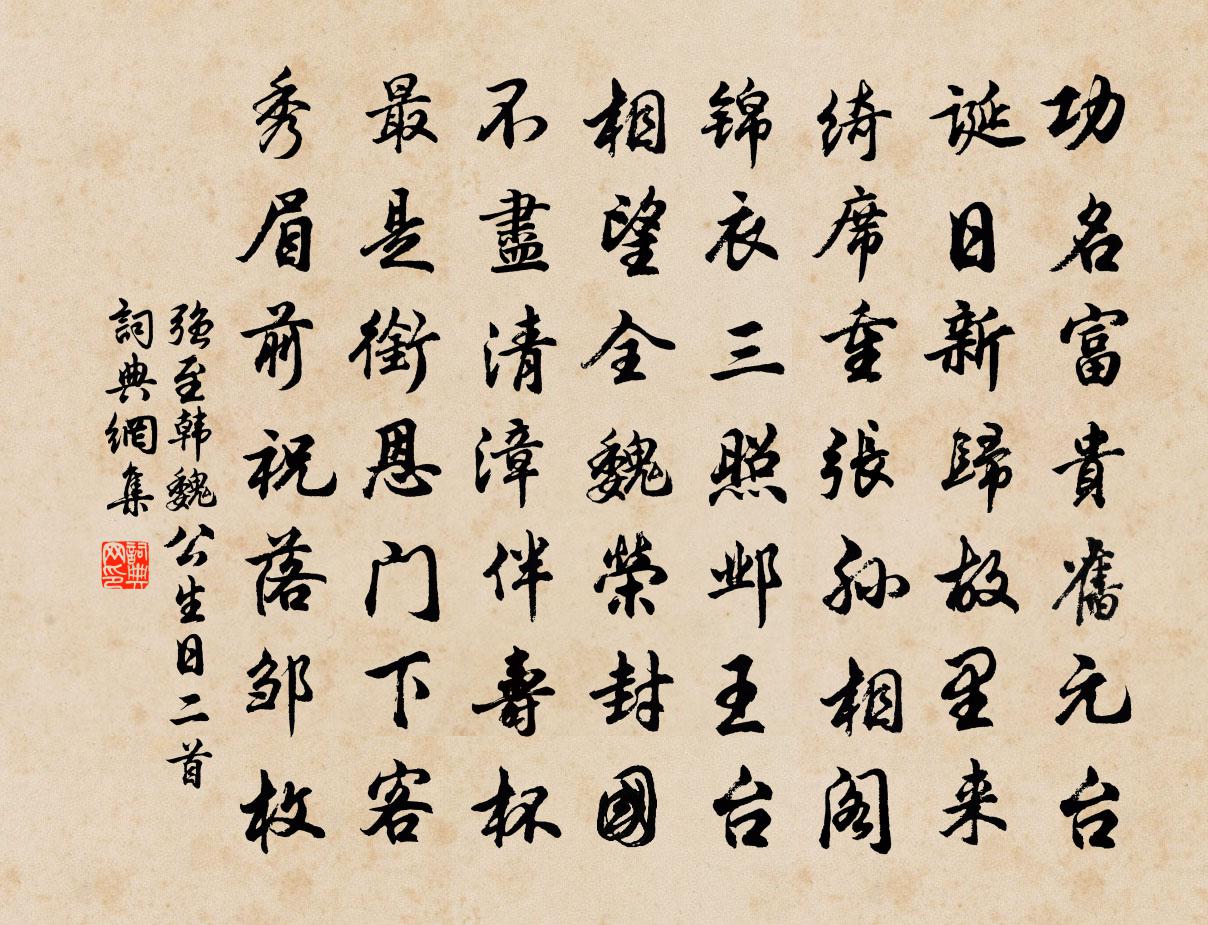 功名富貴舊元台
誕日新歸故里来
綺席重張孙相阁
锦衣三照邺王台
相望全魏榮封國
不盡清漳伴壽杯
最是銜恩门下客
秀眉前祝落邹枚
强至韩魏公生日二首
詞典網集
詞典网印